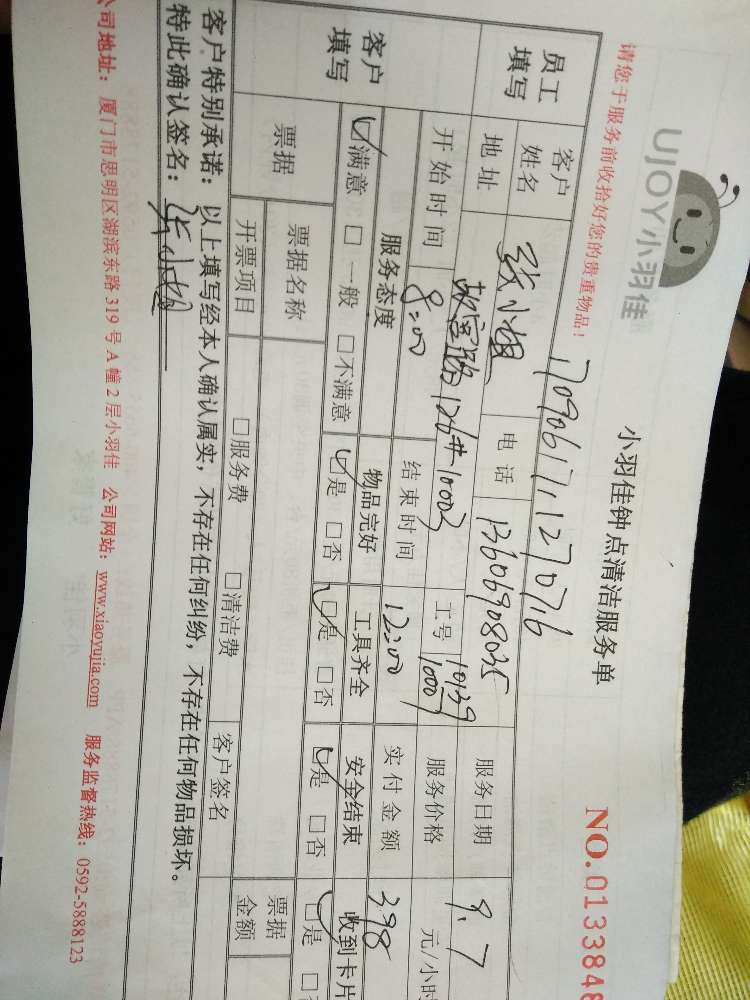 UJOY小羽佳
小羽佳钟点清洁服务单
NO.0133848
请您于服务前收拾好您的贵重物品!
170906171270716
员工填写
客户姓名 张小姐 电话 13606908035 服务日期 9.7
地址 126#1003 工号 10139 10007 服务价格 元/小时
开始时间 8:00 结束时间 12:00 实付金额 398
客户填写
服务态度 物品完好 工具齐全 安全结束 收到卡片
☑满意 □一般 □不满意 ☑是 □否 ☑是 □否 ☑是 □否 ☑是 □
票据 票据名称 票据金额
开票项目 □服务费 □清洁费 客户签名
客户特别承诺:以上填写经本人确认属实,不存在任何纠纷,不存在任何物品损坏。
特此确认签名:
公司地址:厦门市思明区湖滨东路319号A幢2层小羽佳 公司网站:www.xiaoyujia.com 服务监督热线:0592-5888123